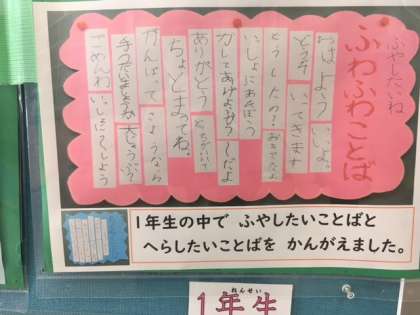 ふやしたいね
ふわふわことば
おはよう いいよ。
どうぞ いってきます
どうしたの?
いっしょにあそぼう
かしてあげよみう
ありがとう
ちょとまってね。
がんばって さようなら
ごめんね いっしょに
1年生の中で ふやしたいことばと
へらしたいことばを かんがえました。
ねんせい
1年生